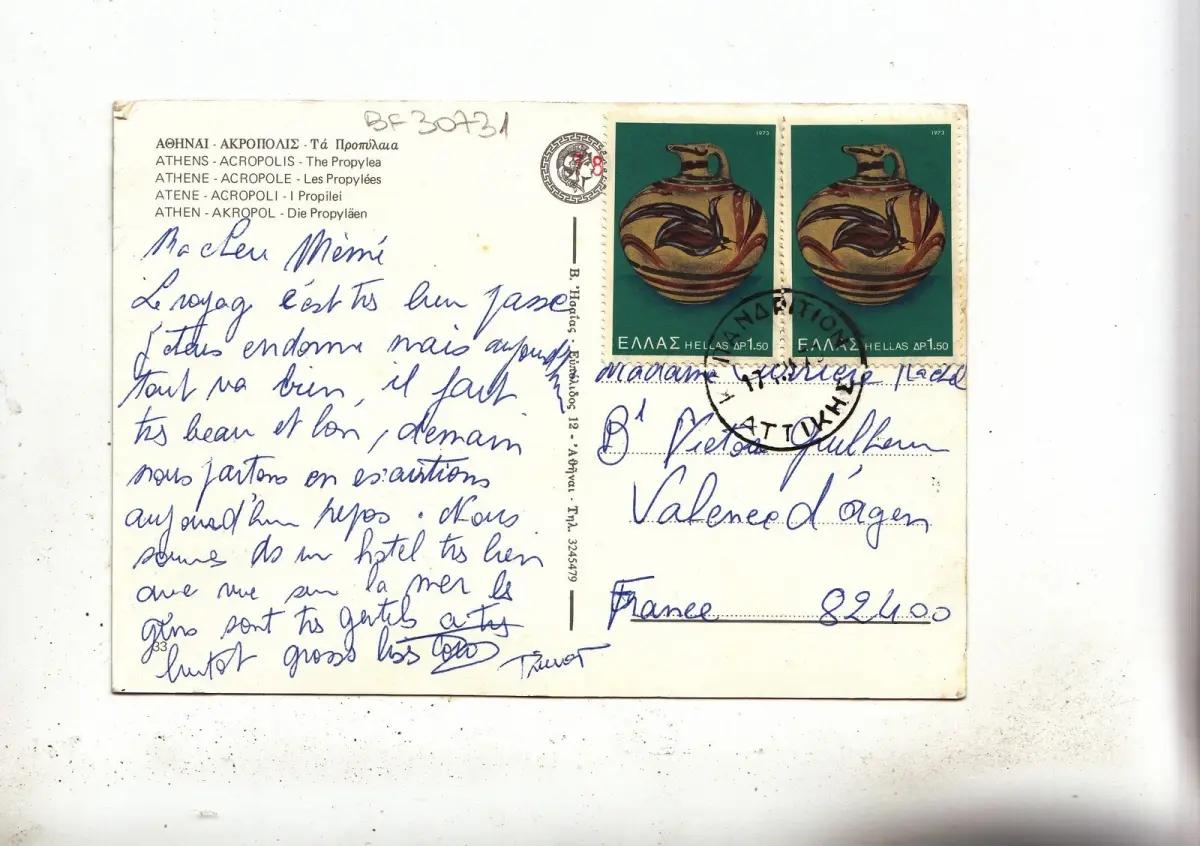 BF 30731
ΑΘΗΝΑΙ - ΑΚΡΟΠΟΛΙΣ - Τά Προπύλαια
ATHENS - ACROPOLIS - The Propylea
ATHENE - ACROPOLE - Les Propylées
ATENE - ACROPOLI - I Propilei
ATHEN - AKROPOL - Die Propyläen
Ma chere Mémé
Le voyag c'est trs bien passe
j'etais endormi mais aujourd'hui
tout va bien, il fait
trs beau et bon, demain
nous partons en
aujourd'hui repos. Nous
sommes ds un hotel trs bien
avec vue sur la mer les
gens sont trs gentils a trs
bientot grosses bises
33
78
Β. Ἠσαΐας - Εὐπόλιδος 12 - Ἀθῆναι - Τηλ. 3245479
1973
ΕΛΛΑΣ HELLAS ΔΡ.1.50
1973
ΕΛΛΑΣ HELLAS ΔΡ.1.50
17
ΑΤΤΙΚΗΣ
Madame
Bd Victor Guilhem
Valence d'agen
France 82400